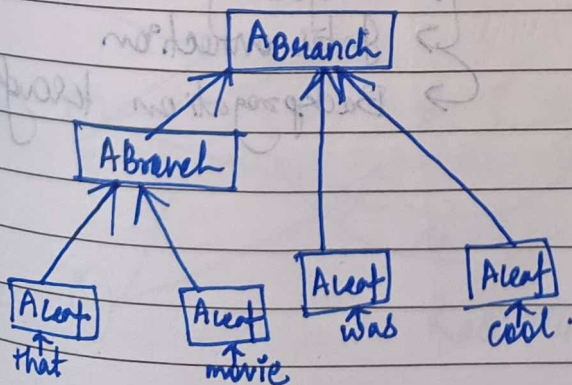 ABranch
ABranch
ALeaf ALeaf ALeaf ALeaf
that movie was cool.